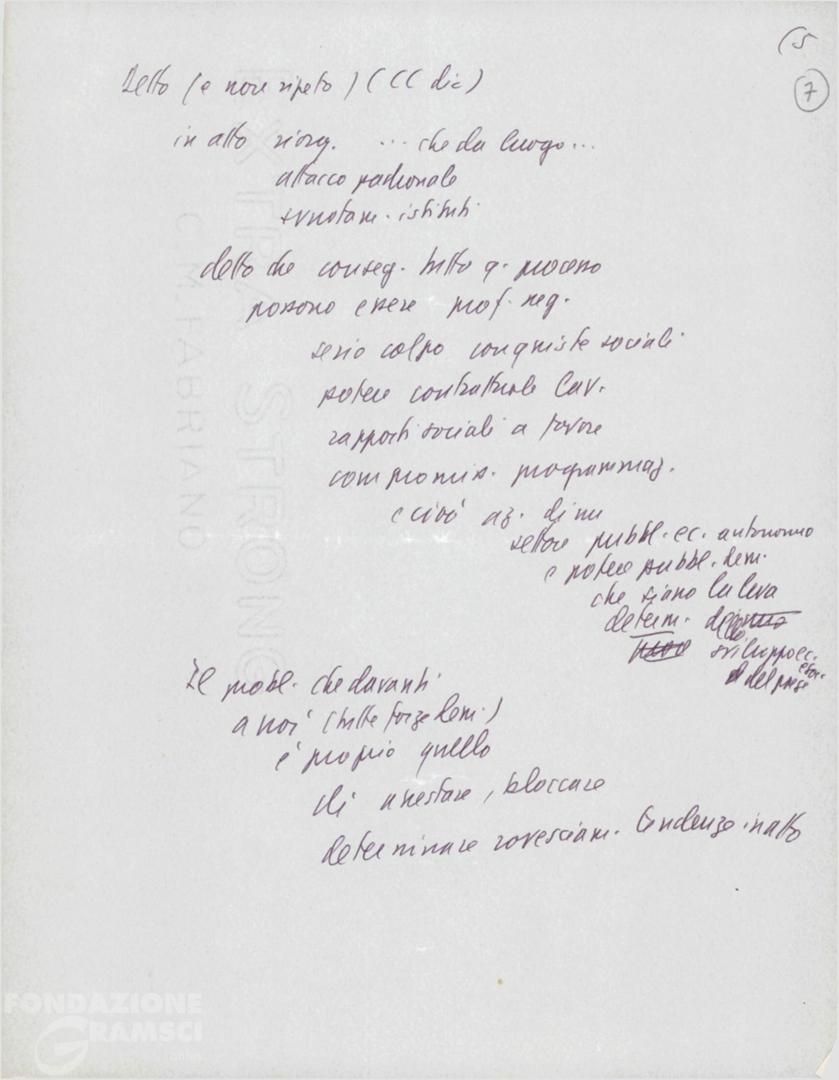 (5
7
Detto (e non ripeto) (CC dic)
in atto riorg. ... che da luogo...
attacco padronale
svuotam. istituti
detto che conseg. tutto q. processo
possono essere prof. neg.
serio colpo conquiste sociali
potere contrattuale lav.
rapporti sociali a favore
compromis. programmaz.
e cioè az. di un
settore pubbl. ec. autonomo
e potere pubbl. dem.
che siano la leva
determ. dello
sviluppo ec.
e soc.
del paese
Il probl. che davanti
a noi (tutte forze dem.)
è proprio quello
di arrestare, bloccare
determinare rovesciam. tendenze in atto
EXTRA STRONG
C.M. FABRIANO
FONDAZIONE
GRAMSCI
onlus